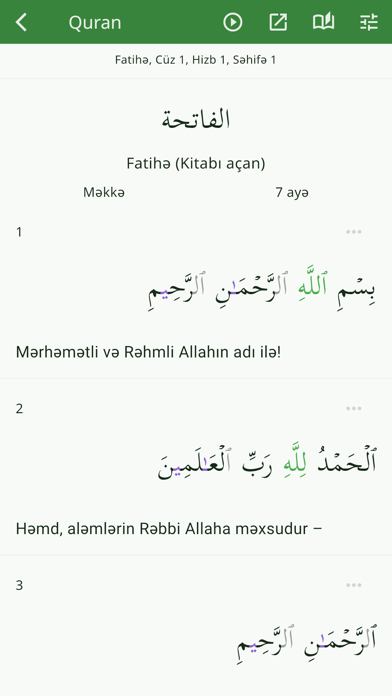 Quran
Fatihə, Cüz 1, Hizb 1, Səhifə 1
الفاتحة
Fatihə (Kitabı açan)
Məkkə 7 ayə
1
بِسْمِ ٱللَّهِ ٱلرَّحْمَـٰنِ ٱلرَّحِيمِ
Mərhəmətli və Rəhmli Allahın adı ilə!
2
ٱلْحَمْدُ لِلَّهِ رَبِّ ٱلْعَـٰلَمِينَ
Həmd, aləmlərin Rəbbi Allaha məxsudur –
3
ٱلرَّحْمَـٰنِ ٱلرَّحِيمِ